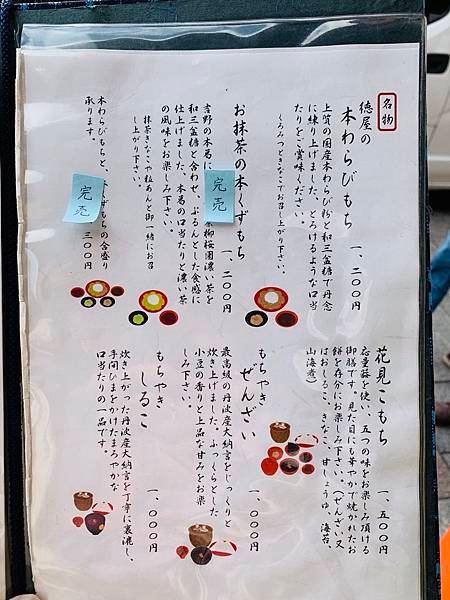 名物
徳屋の
本わらびもち
一、二〇〇円
上質の国産本わらび粉と和三盆糖で丹念
に練り上げました、とろけるような口当
たりをご賞味ください。
くろみつときなこでお召し上がり下さい。
お抹茶の本くずもち
一、二〇〇円
完売
吉野の本葛に
柳桜園濃い茶を
和三盆糖と合わせ、ぷるんとした食感に
仕上げました。本葛の口当たりと濃い茶
の風味をお楽しみ下さい。
抹茶きなこや粒あんと御一緒にお召
し上がり下さい。
本わらびもちと、本くずもちの合盛り
承ります。
三〇〇円
完売
花見こもち
一、五〇〇円
忘重菰を使い、五つの味をお楽しみ頂ける
御膳です。見た目にも華やかで焼かれたお
餅を存分にお楽しみ下さい。(ぜんざい又
はおしるこ、きなこ、甘しょうゆ、海苔、
山海煮)
もちやき
ぜんざい
一、〇〇〇円
最高級の丹波産大納言をじっくりと
炊き上げました。ふっくらとした
小豆の香りと上品な甘みをお楽
しみ下さい。
もちやき
しるこ
一、〇〇〇円
炊き上がった丹波産大納言を丁寧に裏漉し、
手間ひまをかけたまろやかな
口当たりの一品です。